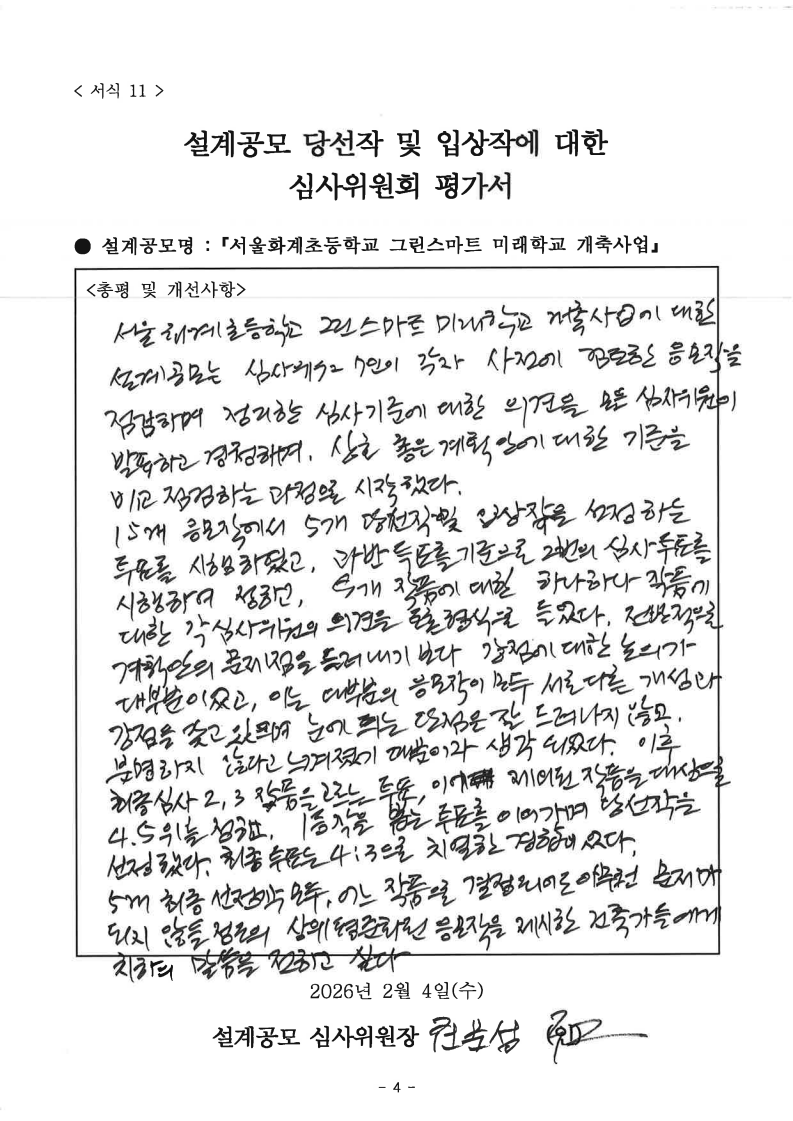 < 서식 11 >
설계공모 당선작 및 입상작에 대한
심사위원회 평가서
● 설계공모명 : 『서울화계초등학교 그린스마트 미래학교 개축사업』
<총평 및 개선사항>
서울화계초등학교 그린스마트 미래학교 개축사업에 대한
설계공모는 심사위원 7인이 각자 사전에 검토한 응모작을
점검하며 정리한 심사기준에 대한 의견을 모든 심사위원이
발표하고 경청하며, 상호 좋은 계획안에 대한 기준을
비교 점검하는 과정으로 시작했다.
15개 응모작에서 5개 당선작 및 입상작을 선정하는
투표를 시행하였고, 과반 득표를 기준으로 2번의 심사투표를
시행하여 정하고, 5개 작품에 대한 하나하나 작품에
대한 각 심사위원의 의견을 토론형식으로 들었다. 전반적으로
계획안의 문제점을 드러내기 보다 강점에 대한 논의가
대부분이었고, 이는 대부분의 응모작이 모두 서로 다른 개성과
강점을 갖고 있으며 눈에 띄는 단점은 잘 드러나지 않고,
분명하지 않다고 느껴졌기 때문이라 생각되었다. 이후
최종심사 2, 3 작품을 고르는 투표, 제외된 작품을 대상으로
4.5위를 정하고, 1등작을 뽑는 투표를 이어가며 당선작을
선정했다. 최종 투표는 4:3으로 치열한 경합이었다.
5개 최종 선정작 모두, 어느 작품으로 결정되어도 아무런 문제가
되지 않을 정도의 상위 평준화된 응모작을 제시한 건축가들에게
치하의 말씀을 전하고 싶다
2026년 2월 4일(수)
설계공모 심사위원장
- 4 -